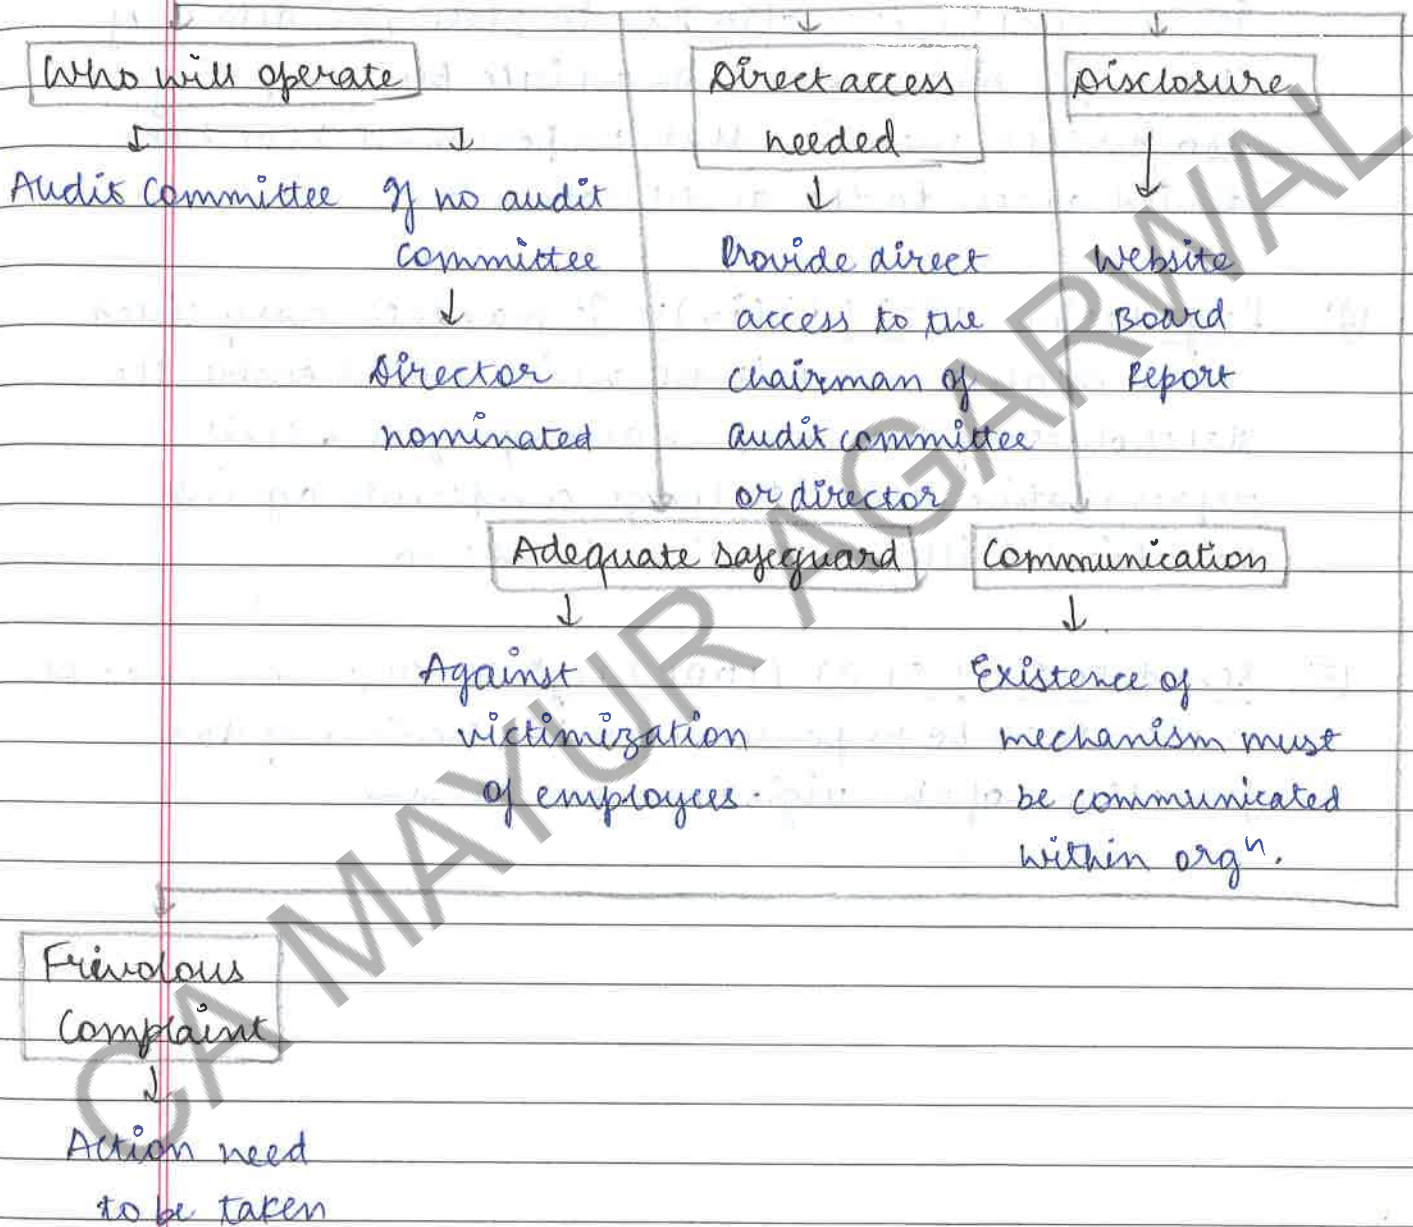 Who will operate
Audit Committee
If no audit
committee
Director
nominated
Direct access
needed
Provide direct
access to the
chairman of
audit committee
or director
Disclosure
Website
Board
Report
Adequate safeguard
Against
victimization
of employees.
Communication
Existence of
mechanism must
be communicated
within orgn.
Frivolous
Complaint
Action need
to be taken
CA MAYUR AGARWAL